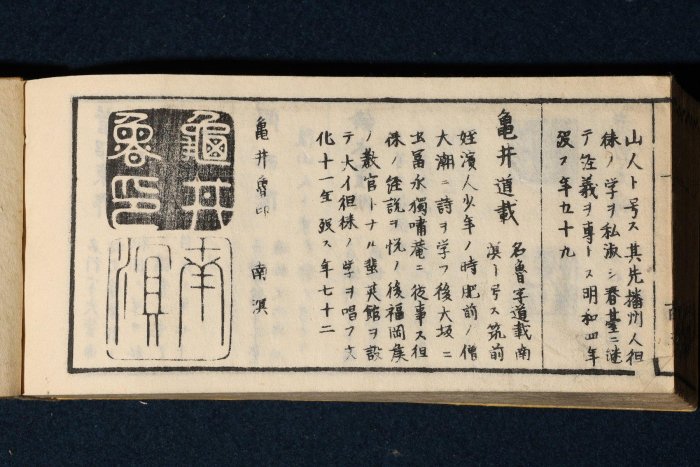 山人ト号ス其先播州人徂
徠ノ学ヲ私淑シ春台ニ継
テ左義ヲ専トス明和四年
歿ス年五十九
亀井道載
名魯字道載南
溟ト号ス筑前
姪濱人少年ノ時肥前ノ僧
大潮ニ詩ヲ学フ後大坂ニ
出冨永獨嘯菴ニ従事ス徂
徠ノ経説ヲ悦ノ後福岡侯
ノ教官トナル蜚英館ヲ設
テ大イ徂徠ノ学ヲ唱フ文
化十一年歿ス年七十二
亀井魯印
南溟
龜井
魯印
南
溟